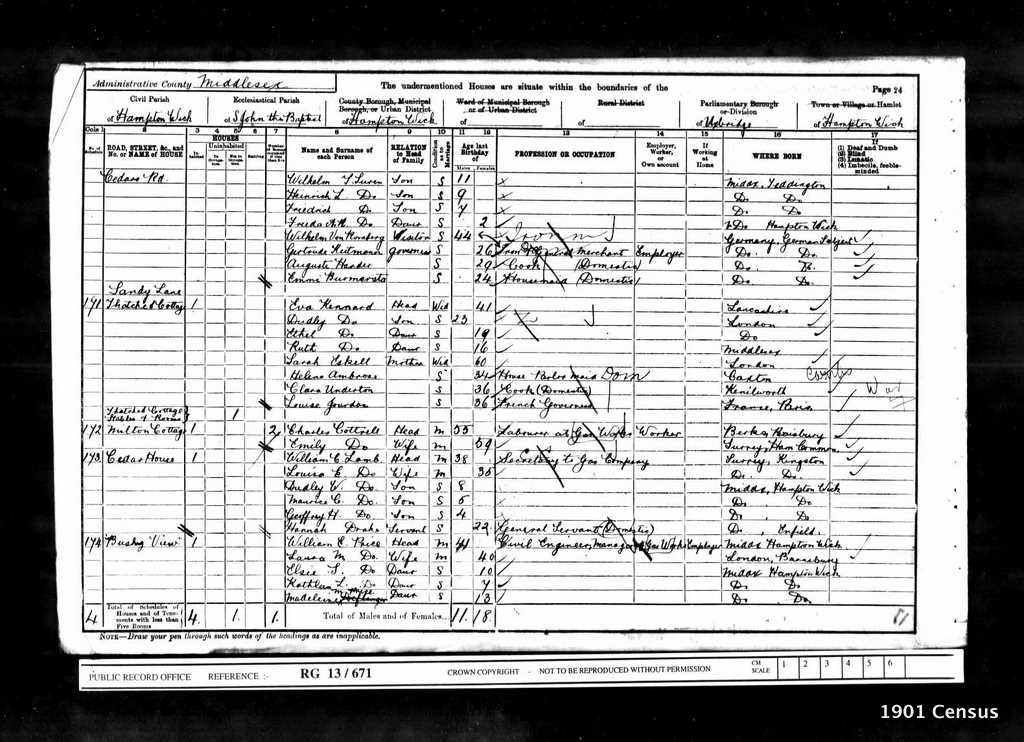 Administrative County Middlesex
The undermentioned Houses are situate within the boundaries of the
Page 24
Civil Parish
of Hampton Wick
Ecclesiastical Parish
of S John the Baptist
County Borough, Municipal Borough, or Urban District
of Hampton Wick
Ward of Municipal Borough or of Urban District
of
Rural District
of
Parliamentary Borough or Division
of Uxbridge
Town or Village or Hamlet
of Hampton Wick
Cols 1 2 3 4 5 6 7 8 9 10 11 12 13 14 15 16 17
No. of Schedule
ROAD, STREET, &c., and No. or NAME of HOUSE
HOUSES
Inhabited
Uninhabited
In Occupation
Not in Occupation
Building
Name and Surname of each Person
RELATION to Head of Family
Condition as to Marriage
Age last Birthday of
Males Females
PROFESSION OR OCCUPATION
Employer, Worker, or Own account
If Working at Home
WHERE BORN
If
(1) Deaf and Dumb
(2) Blind
(3) Lunatic
(4) Imbecile, feeble-minded
Cedars Rd. Wilhelm Son S 11 Middx, Teddington
Heinrich L Do Son S 9 Do Do
Friedrich Do Son S 7 Do Do
Frieda Do Daur S 2 Do Hampton Wick
Wilhelm Von Visitor S 44 Germany, German Subject
Gertrude Governess S 26 Iron & General Merchant Employer Do. Do.
Auguste Harder S 29 Cook (Domestic) Do. Do.
Emmi S 24 Housemaid (Domestic) Do. Do.
Sandy Lane
171 Thatched Cottage 1 Eva Kennard Head Wid 41 Lancashire
Dudley Do Son S 23 London
Ethel Do Daur S 19 Do
Ruth Do Daur S 16 Middlesex
Sarah Eskell Mother Wid 60 London
Helena Ambrose S 34 House Parlor maid Dom Caxton
Clara Underton S 36 Cook (Domestic) Kenilworth
Louise Jourdon S 36 French Governess France, Paris
Thatched Cottage Stables & Rooms 1
172 Milton Cottage 1 2 Charles Cottrell Head M 55 Labourer at Gas Works Worker Berks
Emily Do Wife M 59 Surrey, Ham Common
173 Cedar House 1 William C Lamb Head M 38 Secretary to Gas Company Surrey, Kingston
Louisa E. Do Wife M 35 Do. Do.
Dudley W. Do Son S 8 Middx, Hampton Wick
Maurice C. Do. Son S 5 Do Do
Geoffry H. Do. Son S 4 Do Do
Hannah Drake Servant S 22 General Servant (Domestic) Do. Enfield.
174 Bushy View 1 William E Price Head M 41 Civil Engineer, Manager Gas Works Employer Middx Hampton Wick
Laura M Do. Wife M 40 London, Barnsbury
Elsie S. Do Daur S 10 Middx Hampton Wick
Kathleen L. Do Daur S 7 Do Do
Madeleine Daur S 13 Do. Do.
4 Total of Schedules of Houses and of Tenements with less than Five Rooms 4. 1. 1. Total of Males and of Females... 11. 18.
NOTE—Draw your pen through such words of the headings as are inapplicable.
PUBLIC RECORD OFFICE REFERENCE :- RG 13/671 CROWN COPYRIGHT - NOT TO BE REPRODUCED WITHOUT PERMISSION CM SCALE 1 2 3 4 5 6
1901 Census